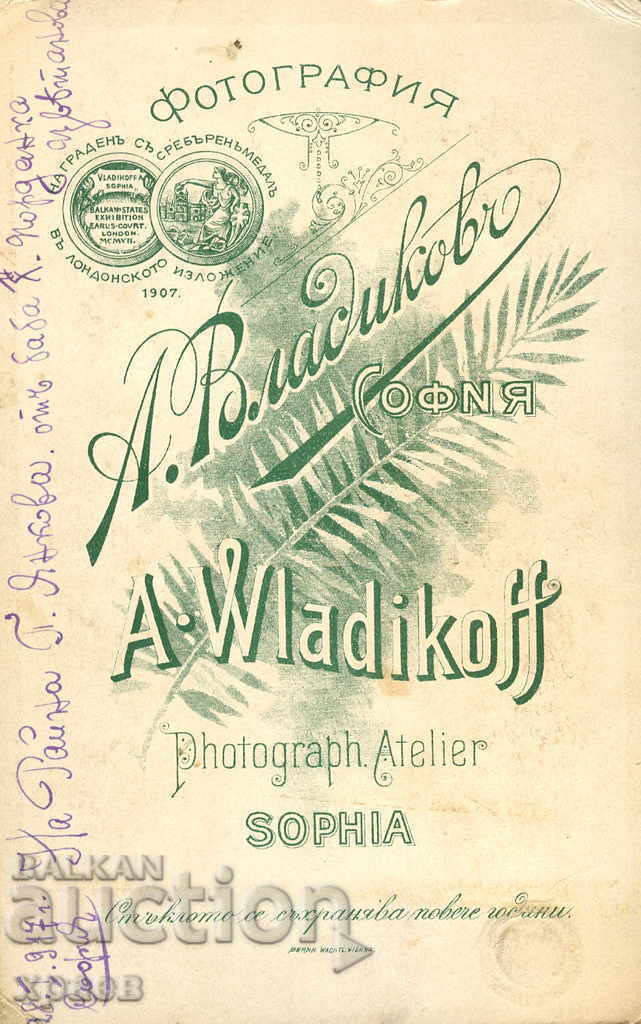 ФОТОГРАФИЯ
НАГРАДЕНЪ СЪ СРЕБЪРЕНЪ МЕДАЛЪ
ВЪ ЛОНДОНСКОТО ИЗЛОЖЕНИЕ
1907.
VLADIKOFF A
SOPHIA.
BALKAN STATES
EXHIBITION
EARLS-COURT.
LONDON.
MCMVII.
А. Владиковъ
СОФИЯ
A. Wladikoff
Photograph. Atelier
SOPHIA
Стъклото се съхранява повече години.
WACHTL, VIENNA
На Райна П. Янкова. отъ баба Х. Йорданка
Цвѣтанова
917 г.
София
BALKAN
auction